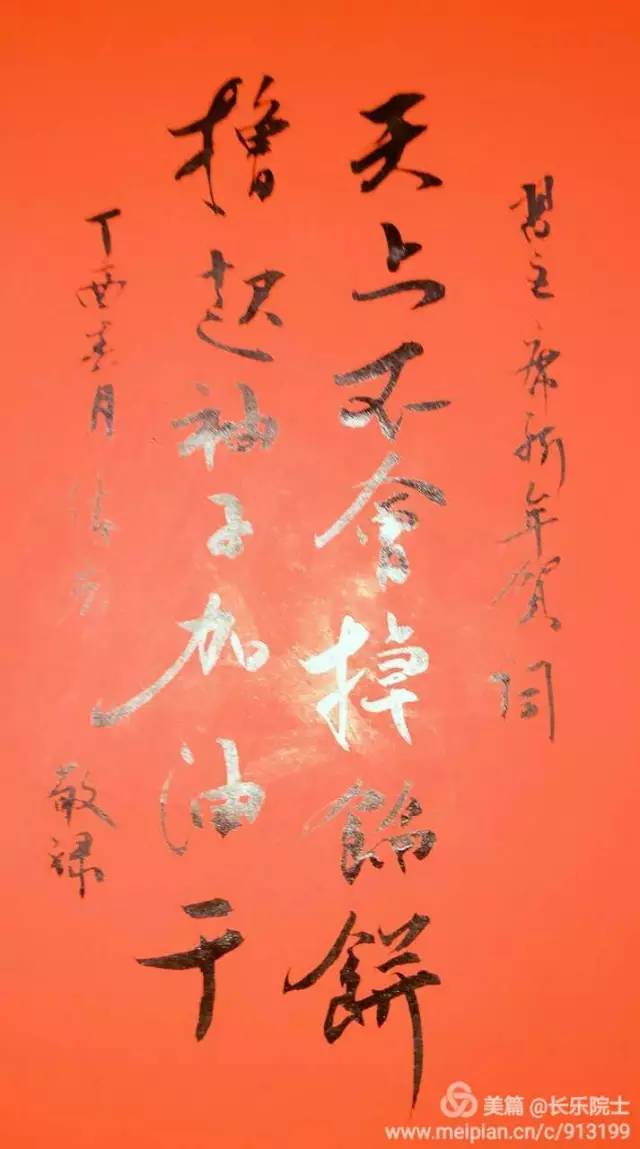 習主席新年賀词
天上不會掉餡餅
擼起袖子加油干
丁酉春月
敬禄
美篇 @长乐院士
www.meipian.cn/c/913199